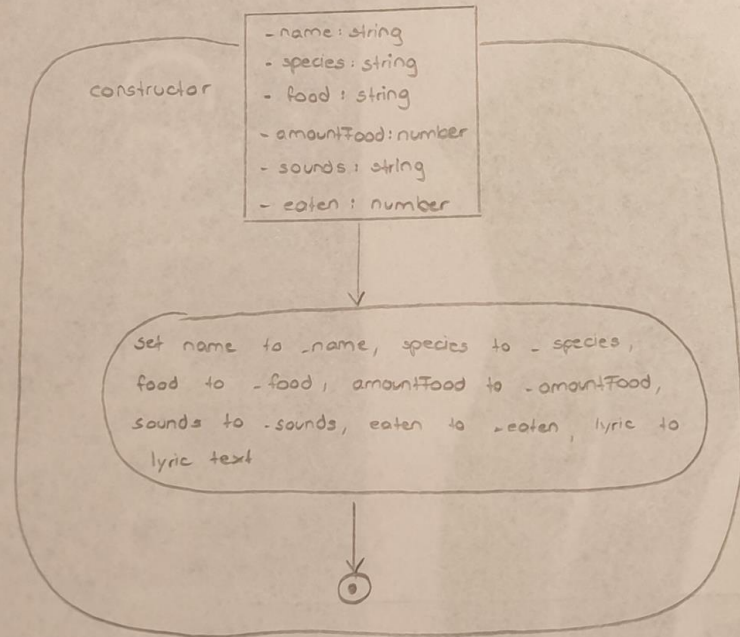 constructor
- name: string
- species: string
- food: string
- amountFood: number
- sounds: string
- eaten: number
set name to _name, species to _ species,
food to _food, amountFood to _amountFood,
sounds to _sounds, eaten to _eaten, lyric to
lyric text